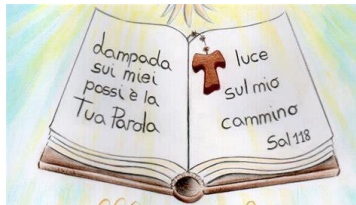 Lampada
sui miei
passi è la
Tua Parola
luce
sul mio
cammino
Sal 118